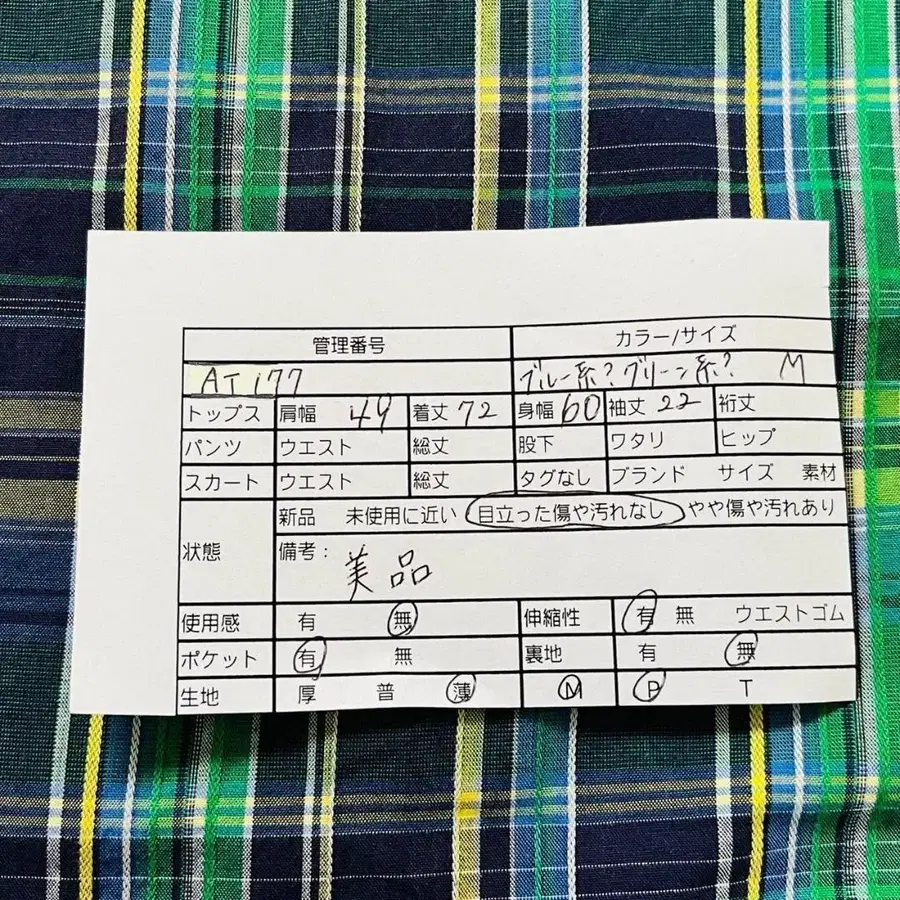 管理番号 カラー/サイズ
AT 177 ブルー系?グリーン系? M
トップス 肩幅 49 着丈 72 身幅 60 袖丈 22 裄丈
パンツ ウエスト 総丈 股下 ワタリ ヒップ
スカート ウエスト 総丈 タグなし ブランド サイズ 素材
状態 新品 未使用に近い 目立った傷や汚れなし やや傷や汚れあり
備考: 美品
使用感 有 無 伸縮性 有 無 ウエストゴム
ポケット 有 無 裏地 有 無
生地 厚 普 薄 M P T